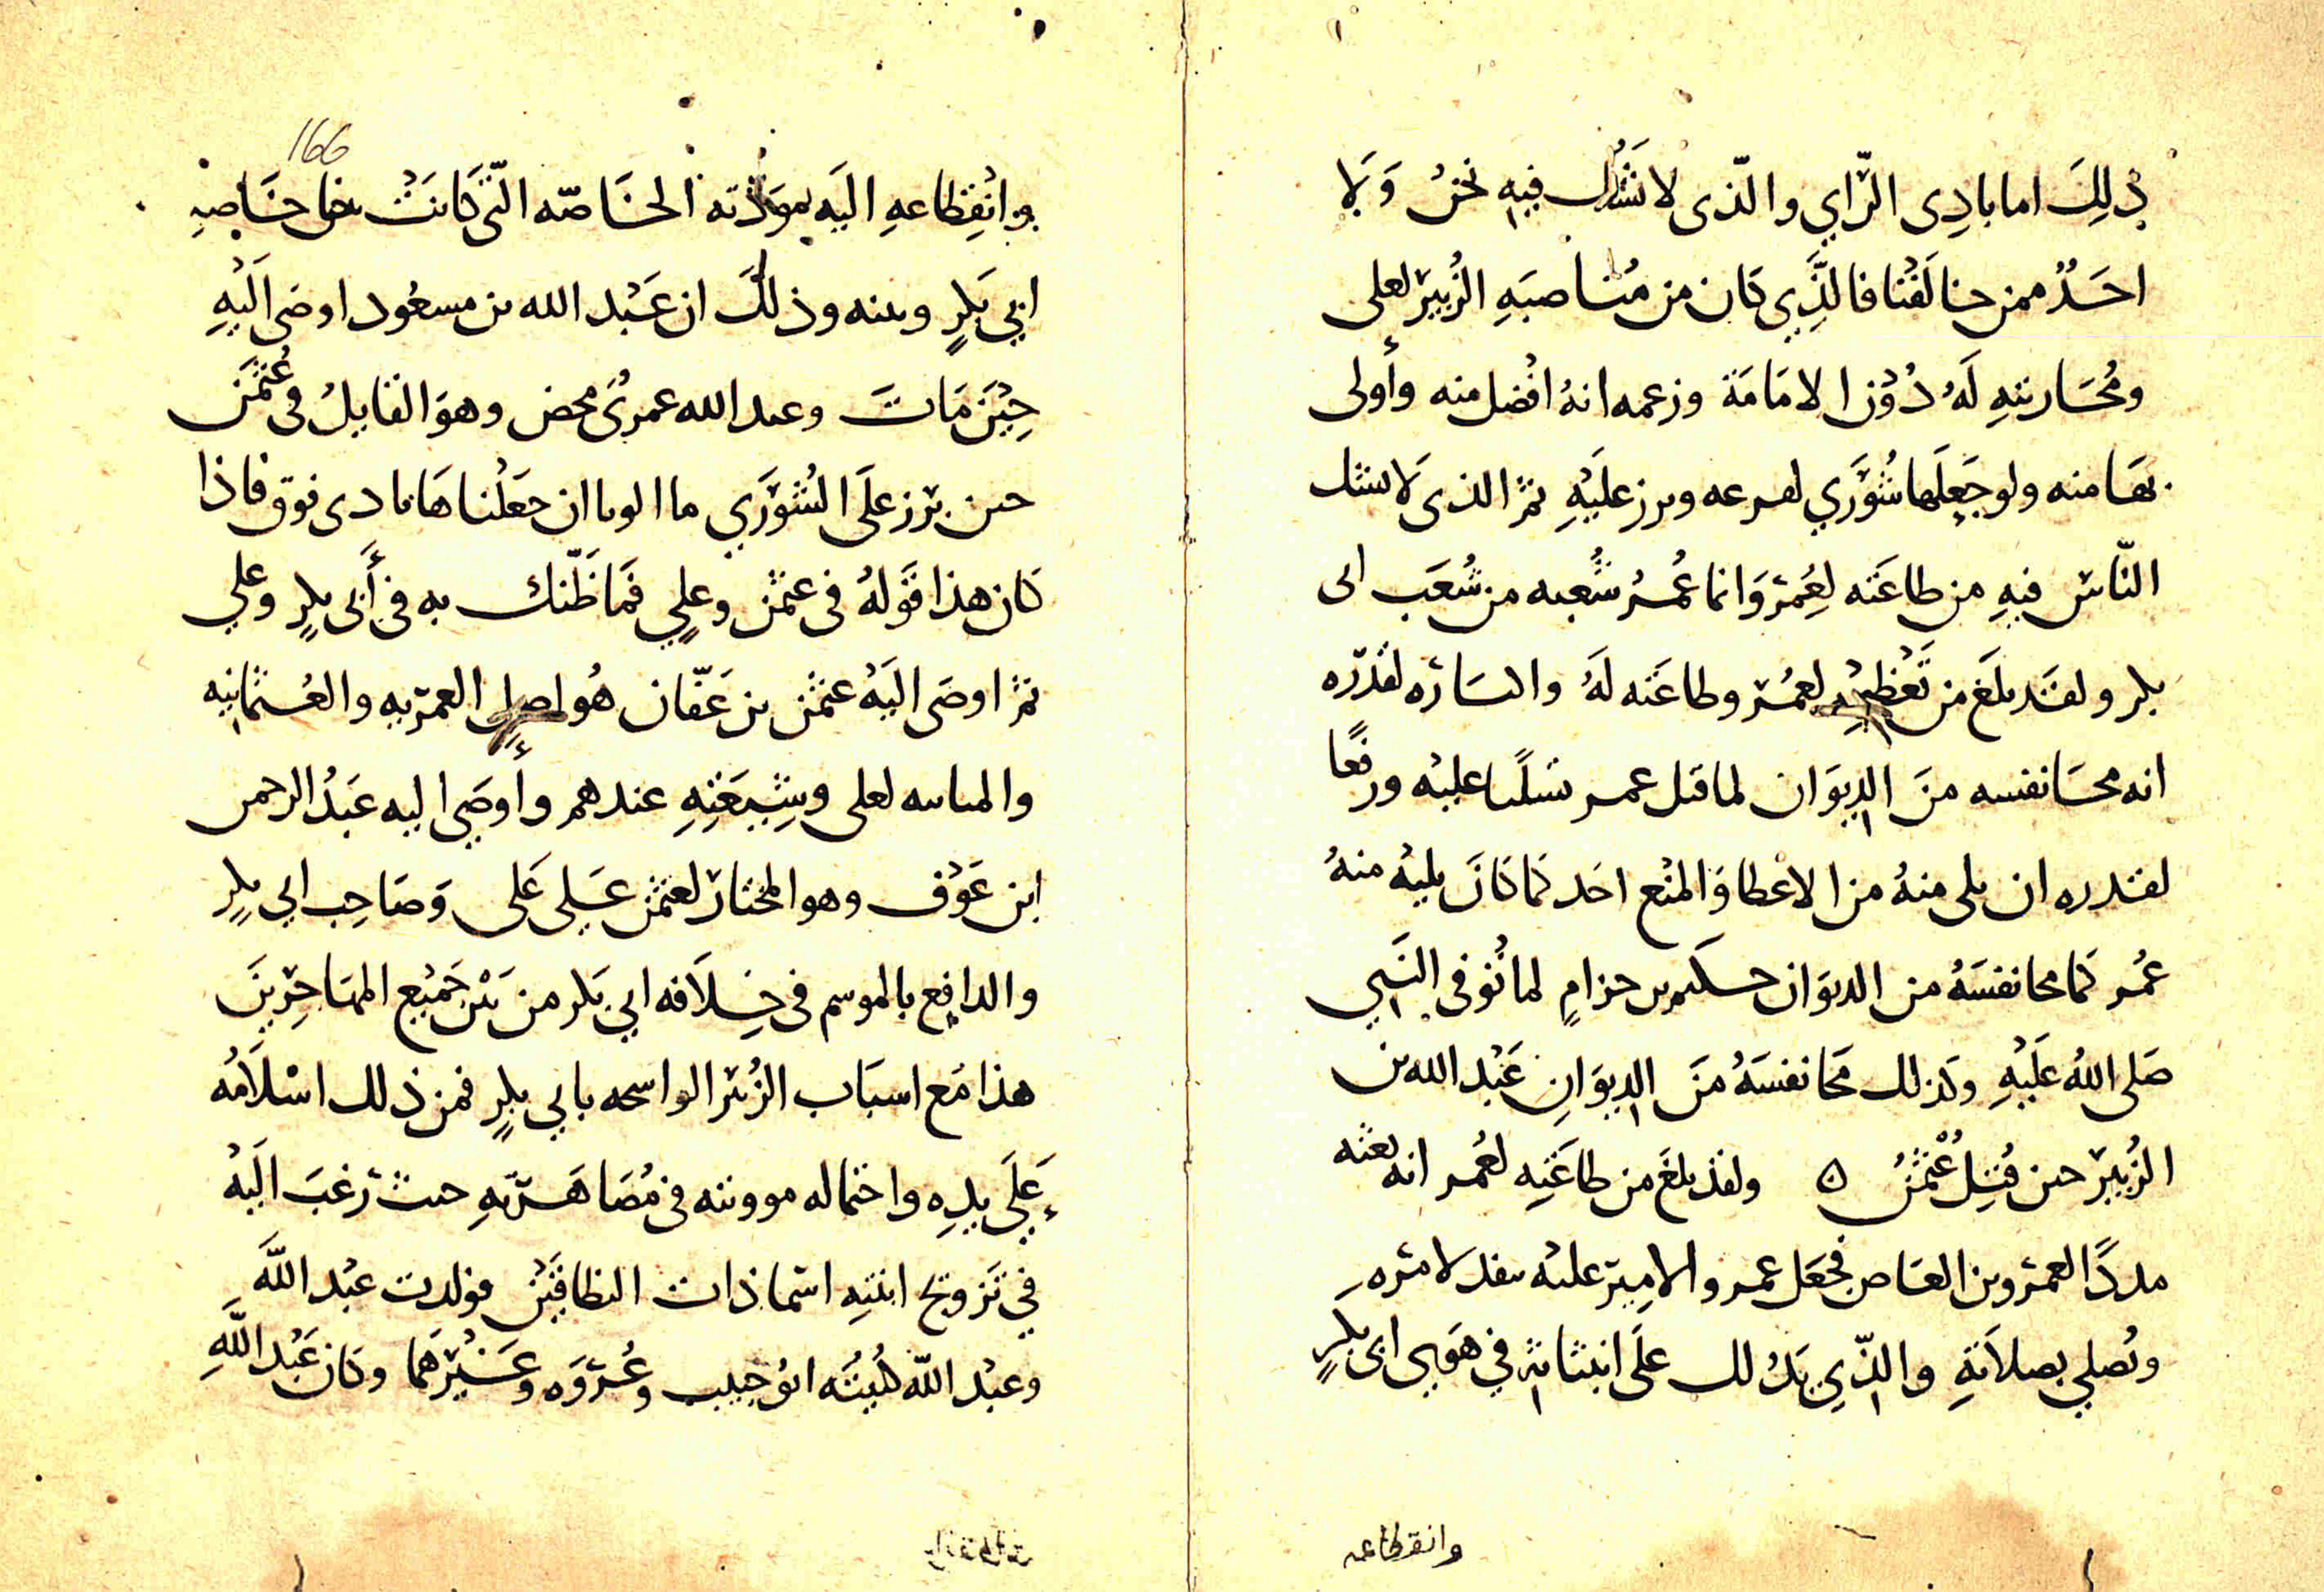 ذلِكَ اما بادِى الرّاي والّذى لا نَشُك فيهِ نحنُ وَلا
احَدٌ ممن خالَفَنا فالَّذِي كان من مُناصبَهِ الزُبير لعلى
ومُحَاربتهِ لَهُ دُوْن الامَامَة وزعمه انهُ افضل منه وأولى
بهَا منه ولو جَعِلَها شُوَرَي لفرعه وبرز علَيْهِ ثم الذى لا يشك
النّاس فيهِ من طاعَته لِعُمَر وَانما عُمرُ شُعبه من شُعَب ابى
بكر ولقَد بلَغ من تَعْظيْمِهِ لعمُر وطاعَته لَهُ
انه محَا نفسه منَ الدِيوَان لما قتل عمر تسَلّيا عليْه ورفعًا
لقدره ان يلى منهُ من الاعطا وَالمنْع احَد كما كانَ يليْه منهُ
عُمر كما محا نفسَهُ من الديوَان حكيم بن حزامٍ لما تُوفى النَبي
صَلى اللهُ علَيْهِ وكذلك مَحَا نفسَهُ منَ الدِيوَانِ عَبْد الله بن
الزُبير حين قُتِل عُثمْنُ ه ولقد بلَغ من طاعَتهِ لعُمر انه بعثه
مددًا لعمرو بن العَاص فجعَل عمرو الامِير عليْه ينفد لامره
ويُصلي بصلاَتهِ والذّي يدُلك علَى انبثاثهِ في هَوى ابى بكرٍ
وانقطاعه
166
وانْقِطاعهِ اليَه بموَدّته الخاصّه الّتى كانَتْ خاصّهِ
ابي بَكرٍ وبينه وذلكَ ان عَبْد الله بن مسعُود اوصَى الَيْهِ
حِيْنَ مَاتَ وعبد الله عمرىٌ محض وهوَ القايلُ فى عُثمَن
حين برز علَى الشُوَرَي ما الونا ان جعَلْناهَا فى ذى فوق فاذا
كان هذا قوَلهُ فى عثمن وعلِي فمَا ظَنّك به فى أَبى بكرٍ وعلي
ثم اوصَى اليَهْ عثمْن بن عَفّان هُو اصل العمريه والعُثمانيه
لعلى وشِيعَتِهِ عندهم وأوصَي اليه عَبْدُ الرحمن
ابن عَوْف وهو المختار لعثمْن عَلى عَلى وَصَاحِب ابي بكرٍ
والدافِع بالموسم فى خِلاَفه ابي بَكر من بَيْن جَميْع المهَاجِرينَ
هذا مَع اسبَاب الزُبَير الواسجه بابي بكرٍ فمن ذلك اسْلاَمُه
عَلَي يدِه واحتماله موونته فى مُصَاهَرتهِ حيث رَغبَ الَيْهْ
فى تَزويج ابنتِهِ اسْما ذات النطاقَيْن فولدت عبْد اللَّهَ
وعبْد اللّه كُنيتُه ابُو خبيب وعُروَه وغيَرهَما وكان عَبْد اللَّهِ